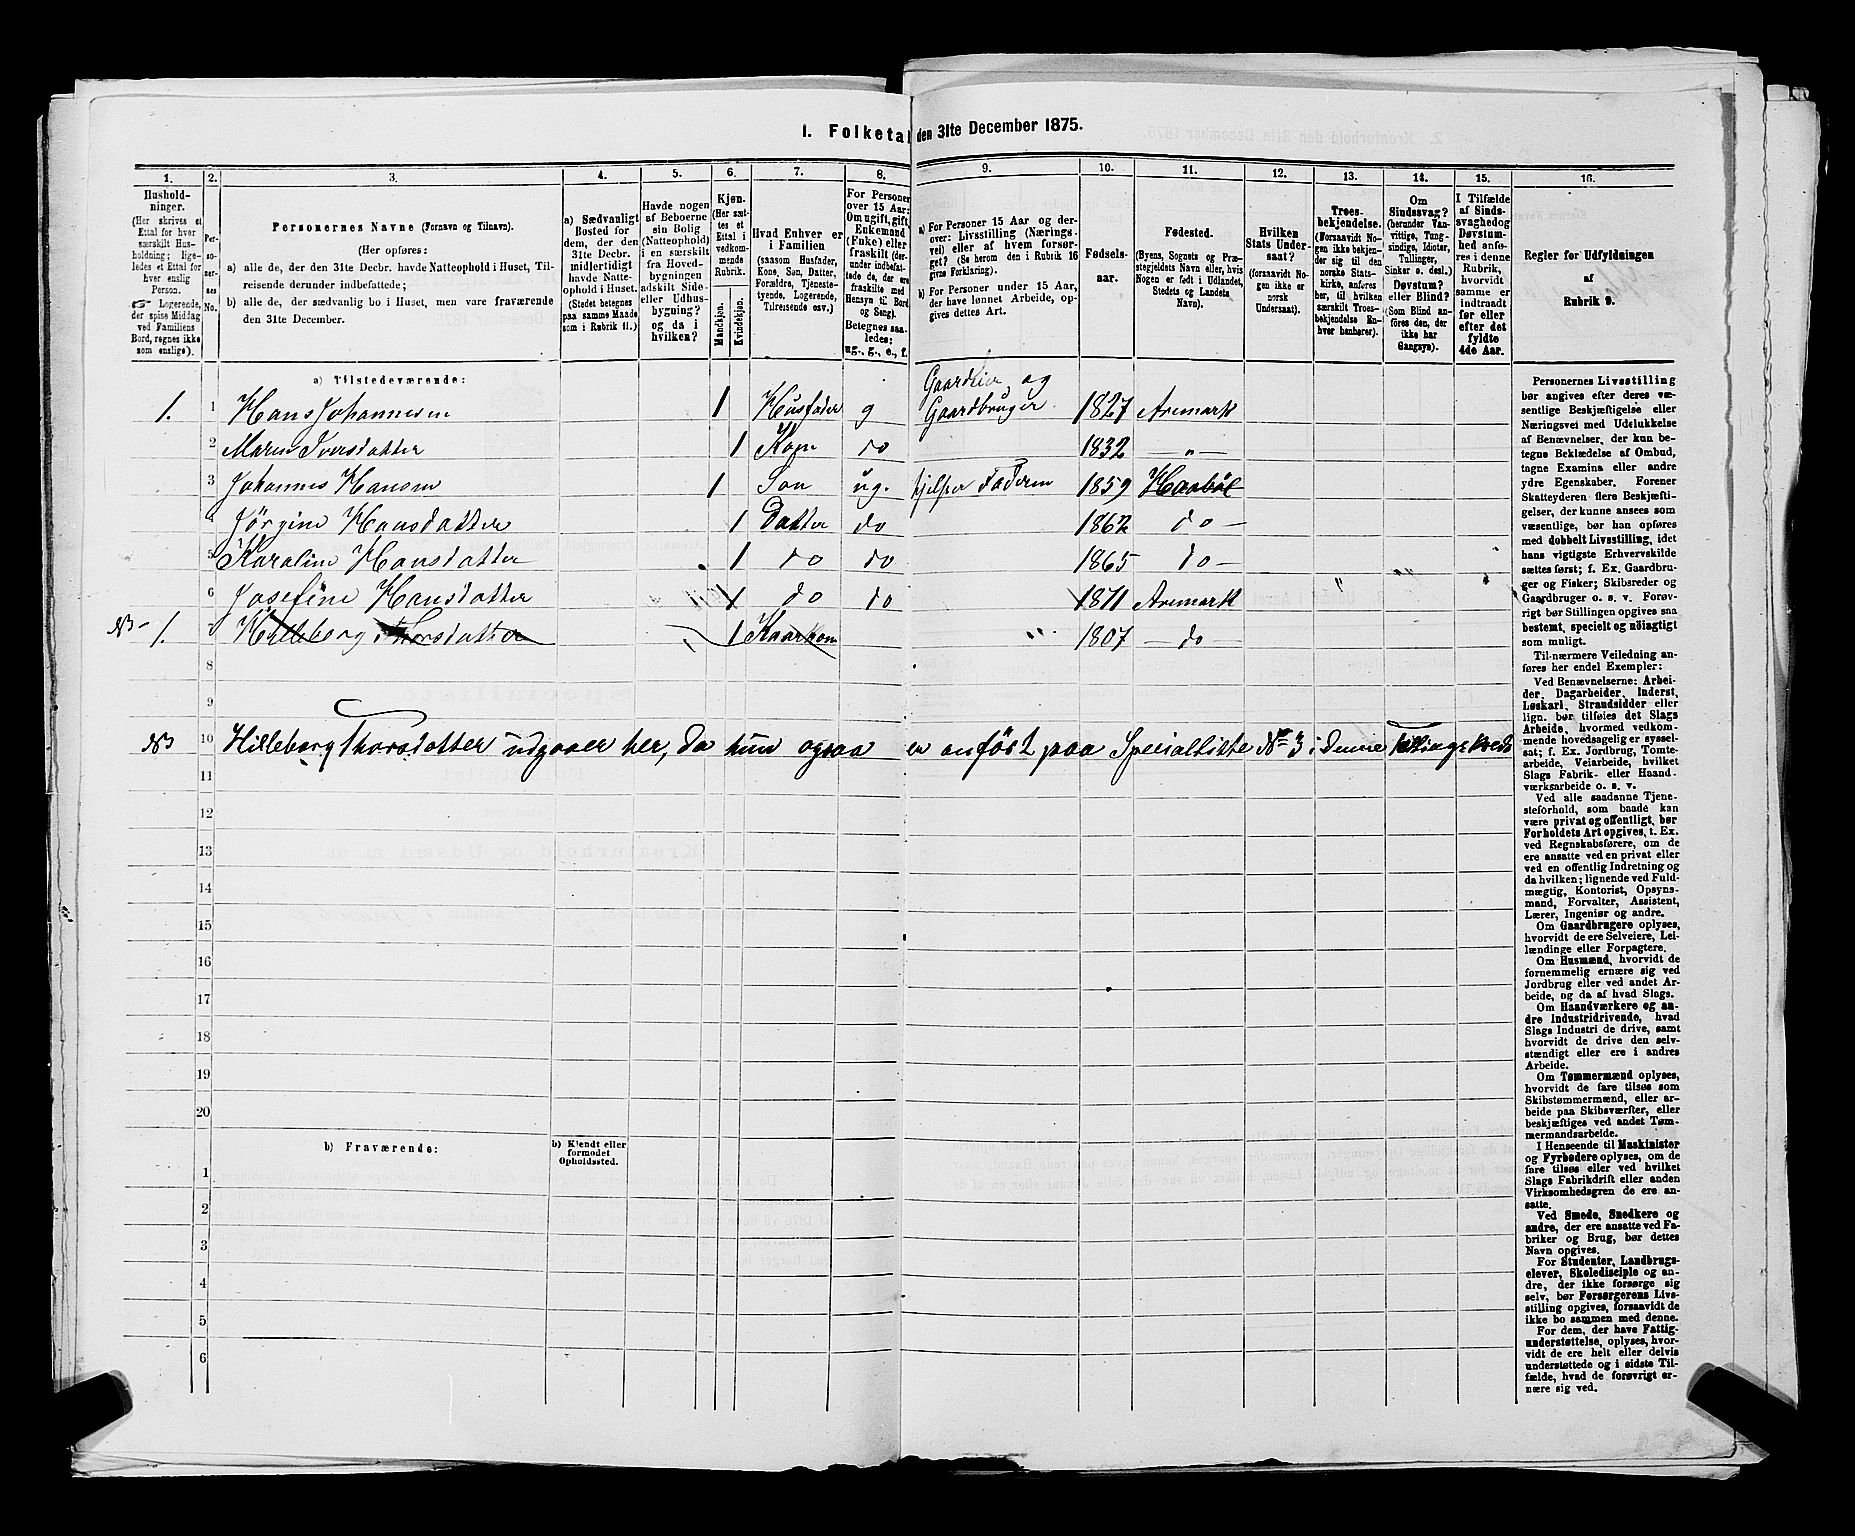 1. Folketal den 31te December 1875.
1. 2. 3. 4. 5. 6. 7. 8. 9. 10. 11. 12. 13. 14. 15. 16.
Hushold-
ninger.
(Her skrives et
Ettal for hver
særskilt Hus-
holdning; lige-
ledes et Ettal for
hver enslig
Person.
☞ Logerende,
der spise Middag
ved Familiens
Bord, regnes ikke
som enslige).
Per-
soner-
nes
No.
Personernes Navne (Fornavn og Tilnavn).
(Her opføres:
a) alle de, der den 31te Decbr. havde Natteophold i Huset, Til-
reisende derunder indbefattede;
b) alle de, der sædvanlig bo i Huset, men vare fraværende
den 31te December.
a) Sædvanligt
Bosted for
dem, der den
31te Decbr.
midlertidigt
havde Natte-
ophold i Huset.
(Stedet betegnes
paa samme Maade
som i Rubrik 11.)
Havde nogen
af Beboerne
sin Bolig
(Natteophold)
i en særskilt
fra Hoved-
bygningen
adskilt Side-
eller Udhus-
bygning?
og da i
hvilken?
Kjøn.
(Her sæt-
tes et
Ettal i
vedkom-
mende
Rubrik.
Mandkjøn.
Kvindekjøn.
Hvad Enhver er
i Familien
(saasom Husfader,
Kone, Søn, Datter,
Forældre, Tjeneste-
tyende, Logerende,
Tilreisende osv.)
For Personer
over 15 Aar:
Om ugift, gift
Enkemand
(Enke) eller
fraskilt (der-
under indbefat-
tede de, der ere
fraskilte med
Hensyn til Bord
og Seng).
Betegnes saa-
ledes:
ug., g., e., f.
a) For Personer 15 Aar og der-
over: Livsstilling (Nærings-
vei) eller af hvem forsør-
get? (Se herom den i Rubrik 16
givne Forklaring).
b) For Personer under 15 Aar,
der have lønnet Arbeide, op-
gives dettes Art.
Fødsels-
aar.
Fødested.
(Byens, Sognets og Præ-
stegjeldets Navn eller, hvis
Nogen er født i Udlandet,
Stedets og Landets
Navn).
Hvilken
Stats Under-
saat?
(forsaavidt No-
gen ikke er
norsk
Undersaat).
Troes-
bekjendelse.
(Forsaavidt No-
gen ikke bekjen-
der sig til den
norske Stats-
kirke, anføres
her, til hvilken
særskilt Troes-
bekjendelse En-
hver henhører).
Om
Sindssvag?
(herunder Van-
vittige, Tung-
sindige, Idioter,
Tullinger,
Sinker o. desl.)
Døvstum?
eller Blind?
(Som Blind an-
føres den, der
ikke har
Gangsyn).
I Tilfælde
af Sinds-
svaghedog
Døvstum-
hed anfø-
res i denne
Rubrik,
hvorvidt
samme er
indtraadt
før eller
efter det
fyldte
4de Aar.
Regler for Udfyldningen
af
Rubrik 9.
a) Tilstedeværende:
1. 1 Hans Johannesen 1 Husfader g Gaardeier og Gaardbruger 1827 Aremark
2 Maren Iversdatter 1 Kone do 1832 — „ —
3 Johannes Hansen 1 Søn ug. hjelper Faderen 1859 Haabøl
4 Jørgine Hansdatter 1 Datter do 1862 do —
5 Karoline Hansdatter 1 do do 1865 do —
6 Josefine Hansdatter 1 do do 1871 Aremark
NB — 1. 7 Hilleborg Thorsdatter 1 Kaarkone 1807 — do
8
9
NB 10 Hilleborg Thorsdatter udgaaer her, da hun ogsaa er anført paa Specialliste No 3 i denne Tællingskreds
11
12
13
14
15
16
17
18
19
20
b) Fraværende:
b) Kjendt eller
formodet
Opholdssted.
1
2
3
4
5
6
Personernes Livsstilling
bør angives efter deres væ-
sentlige Beskjæftigelse eller
Næringsvei med Udelukkelse
af Benævnelser, der kun be-
tegne Beklædelse af Ombud,
tagne Examina eller andre
ydre Egenskaber. Forener
Skatteyderen flere Beskjæfti-
gelser, der kunne ansees som
væsentlige, bør han opføres
med dobbelt Livsstilling, idet
hans vigtigste Erhvervskilde
sættes først; f. Ex. Gaardbru-
ger og Fisker; Skibsreder og
Gaardbruger o. s. v. Forøv-
rigt bør Stillingen opgives saa
bestemt, specielt og nøiagtigt
som muligt.
Til nærmere Veiledning an-
føres her endel Exempler:
Ved Benævnelserne: Arbei-
der, Dagarbeider, Inderst,
Løskarl, Strandsidder eller
lign. bør tilføies det Slags
Arbeide, hvormed vedkom-
mende hovedsagelig er syssel-
sat; f. Ex. Jordbrug, Tomte-
arbeide, Veiarbeide, hvilket
Slags Fabrik- eller Haand-
værksarbeide o. s. v.
Ved alle saadanne Tjene-
steforhold, som baade kan
være privat og offentligt, bør
Forholdets Art opgives, t. Ex.
ved Regnskabsførere, om de
ere ansatte ved en privat eller
ved en offentlig Indretning og
da hvilken; lignende ved Fuld-
mægtig, Kontorist, Opsyns-
mand, Forvalter, Assistent,
Lærer, Ingeniør og andre.
Om Gaardbrugere oplyses,
hvorvidt de ere Selveiere, Lei-
lændinge eller Forpagtere.
Om Husmænd, hvorvidt de
fornemmelig ernære sig ved
Jordbrug eller ved andet Ar-
beide, og da af hvad Slags.
Om Haandværkere og an-
dre Industridrivende, hvad
Slags Industri de drive, samt
hvorvidt de drive den selv-
stændigt eller ere i andres
Arbeide.
Om Tømmermænd oplyses,
hvorvidt de fare tilsøs som
Skibstømmermænd, eller ar-
beide paa Skibsværfter, eller
beskjæftiges ved andet Tøm-
mermandsarbeide.
I Henseende til Maskinister
og Fyrbødere oplyses, om de
fare tilsøs eller ved hvilket
Slags Fabrikdrift eller anden
Virksomhedsgren de ere an-
satte.
Ved Smede, Snedkere og
andre, der ere ansatte ved Fa-
briker og Brug, bør dettes
Navn opgives.
For Studenter, Landbrugs-
elever, Skoledisciple og an-
dre, der ikke forsørge sig
selv, bør Forsørgerens Livs-
stilling opgives, forsaavidt de
ikke bo sammen med denne.
For dem, der have Fattig-
understøttelse, oplyses, hvor-
vidt de ere helt eller delvis
understøttede og i sidste Til-
fælde, hvad de forøvrigt er-
nære sig ved.